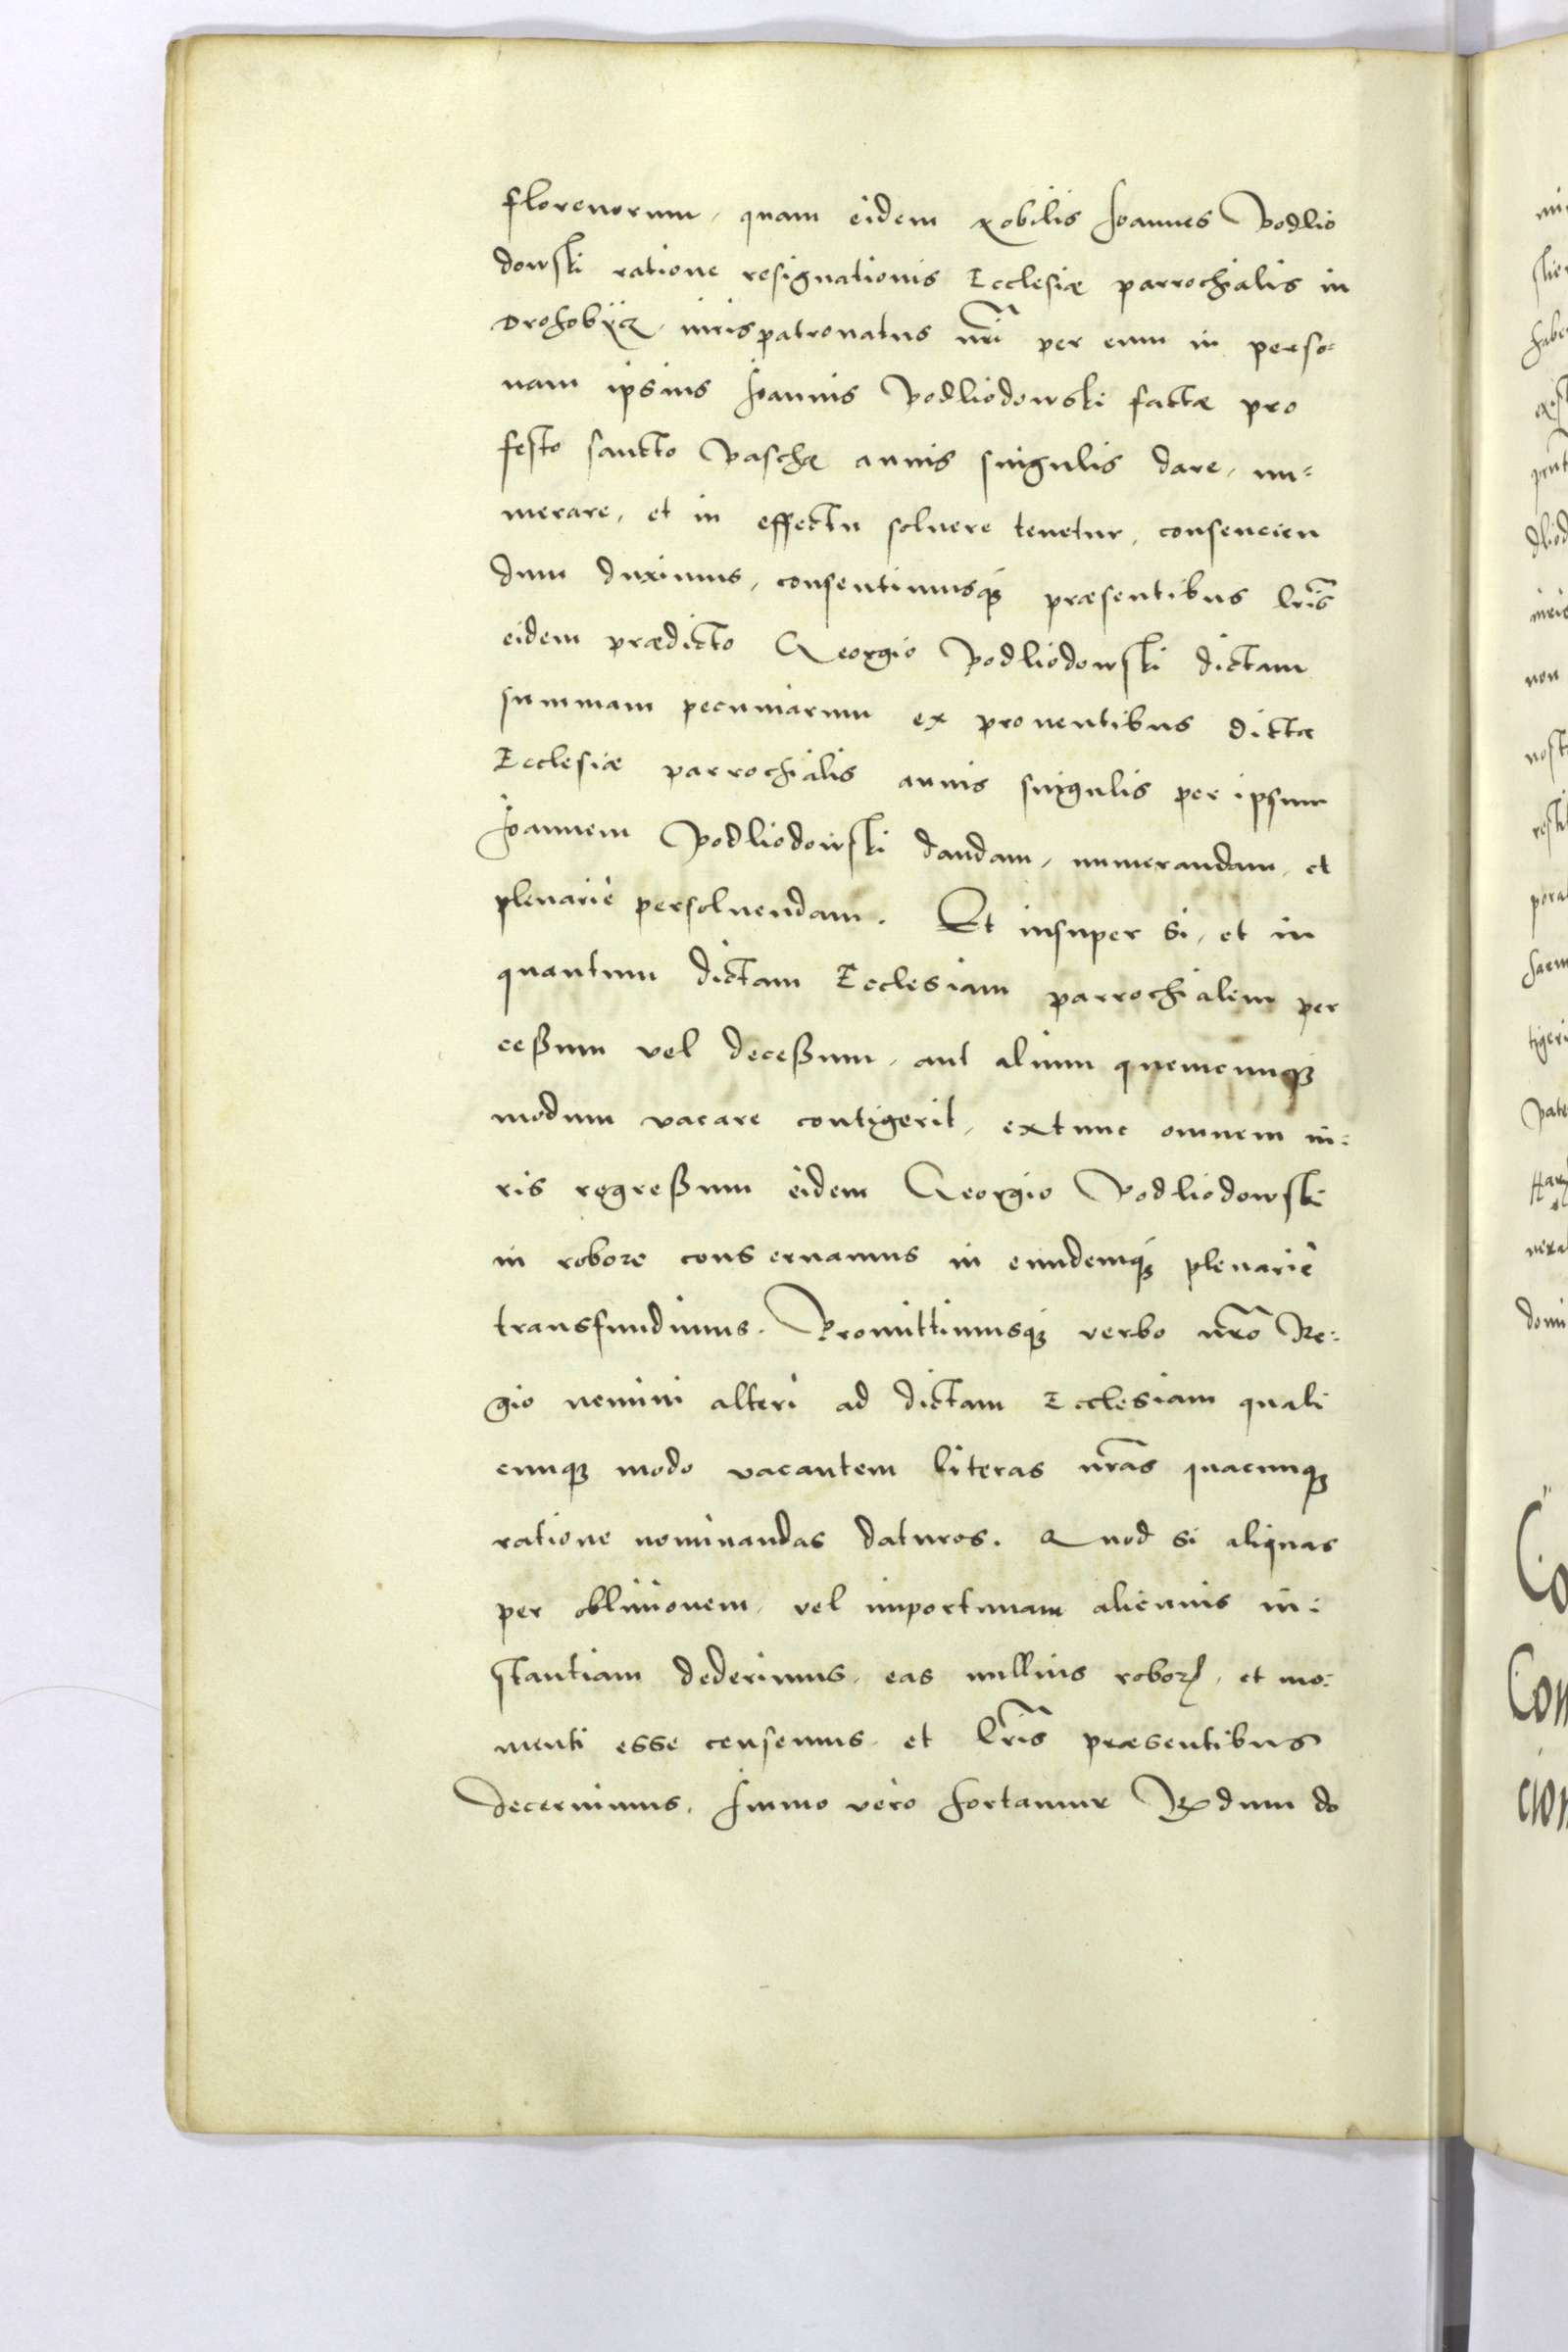 florenorum, quam eidem Nobilis Joannes Podlio
dowski ratione resignationis Ecclesiæ parrochialis in
Drohobÿcz, iurispatronatus nr̃i per eum in perso=
nam ipsius Joannis Podliodowski factæ pro
festo sancto Paschæ annis singulis dare, nu=
merare, et in effectu soluere tenetur, consencien
dum duximus, consentimusq3 præsentibus lr̃is
eidem prædicto Georgio Podliodowski dictam
summam pecuniarum ex prouentibus dictæ
Ecclesiæ parrochialis annis singulis per ipsum
Joannem Podliodowski dandam, numerandam, et
plenariè persoluendam. Et insuper si, et in
quantum dictam Ecclesiam parrochialem per
ceßum vel deceßum, aut alium quemcunq3
modum vacare contigerit, extunc omnem iu=
ris regreßum eidem Georgio Podliodowski
in robore conseruamus in eundemq3 plenariè
transfundimus. Promittimusq3 verbo nr̃o Re=
gio nemini alteri ad dictam Ecclesiam quali
cunq3 modo vacantem literas nr̃as quacunq3
ratione nominandas daturos. Quod si aliquas
per obliuionem, vel importunam alicuius in=
stantiam dederimus, eas nullius roboris, et mo=
menti esse censemus, et lr̃is præsentibus
decernimus. Immo vero hortamur Rdum do